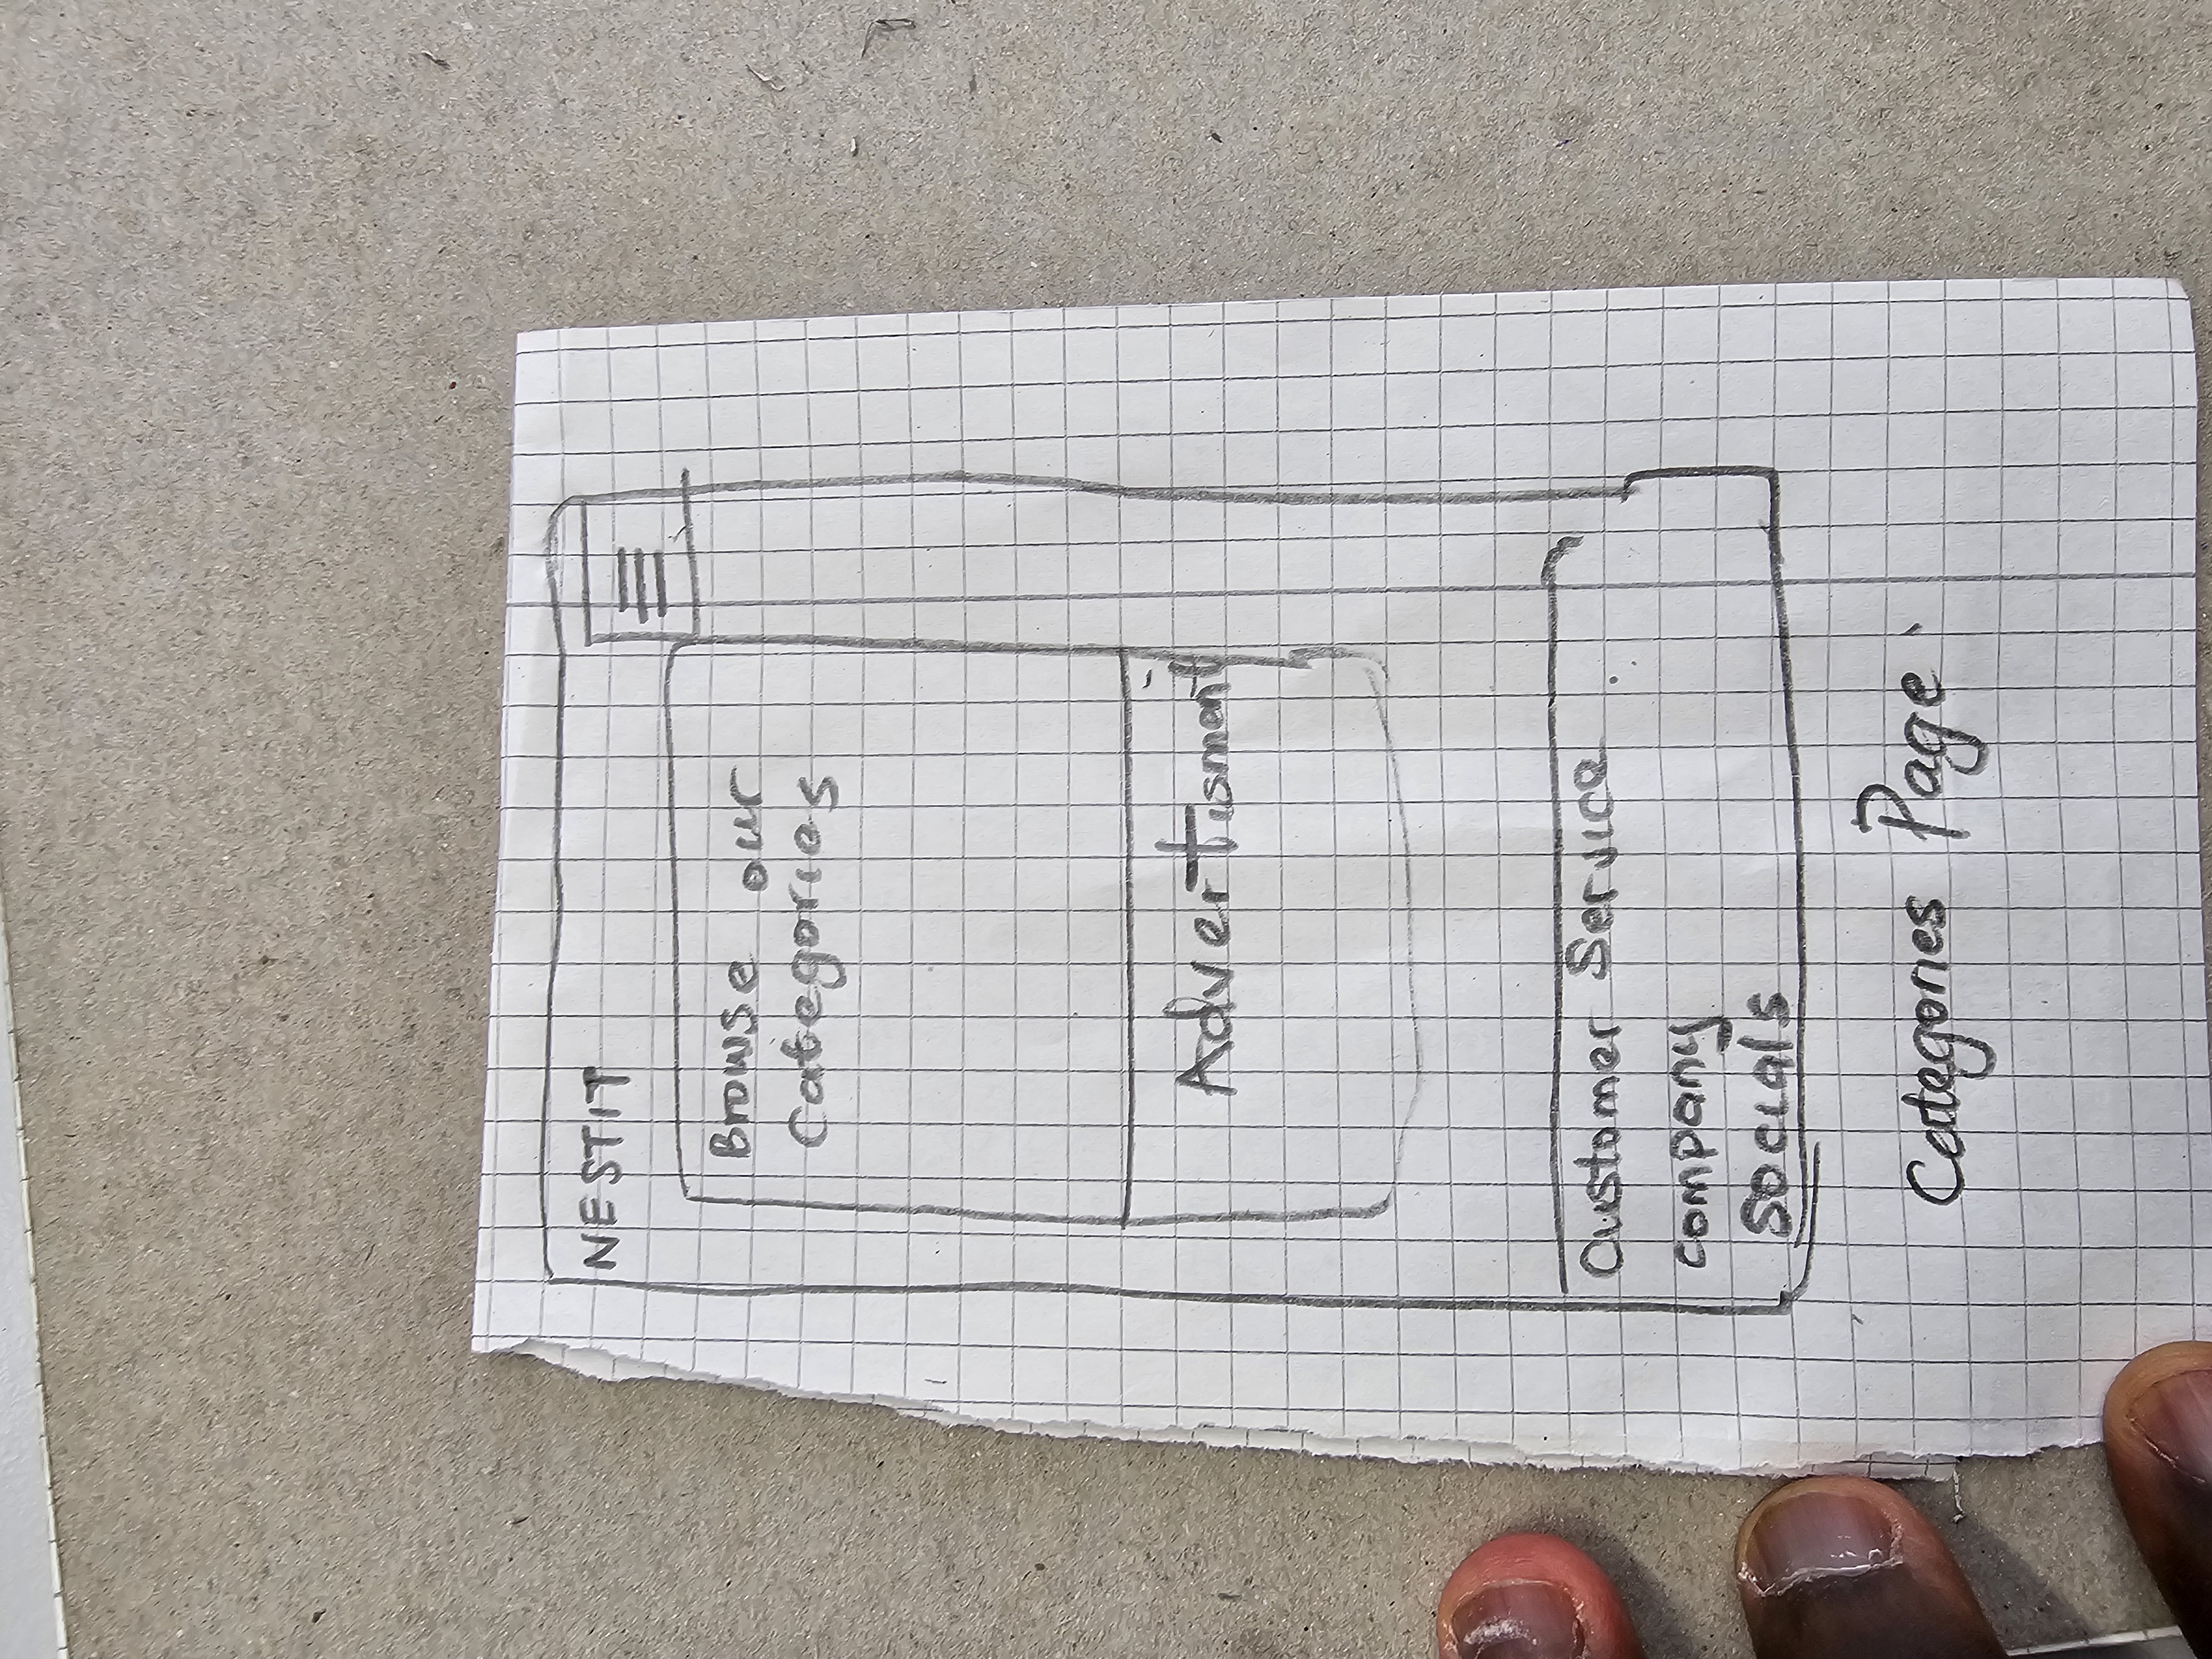 NESTIT
Browse our
Categories
Advertisment
Customer Service
company
Socials
Categories Page.